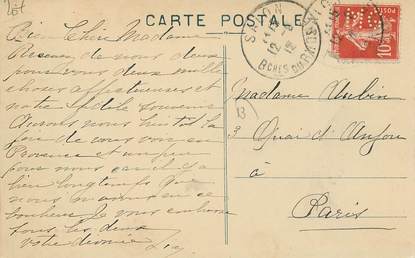 CARTE POSTALE
Bien Chère Madame
Recevez de nous deux
pour vous deux mille
choses affectueuses et
notre fidèle souvenir
Aurons nous bientôt la
joie de vous voir en
Provence et un peu
pour nous car il y a
bien longtemps que
nous n'avons eu ce
bonheur. Je vous embrasse
tous les deux
votre dernière
SALON
12
BCHES DU RHONE
10
Madame Aubin
3 Quai d'Anjou
à
Paris